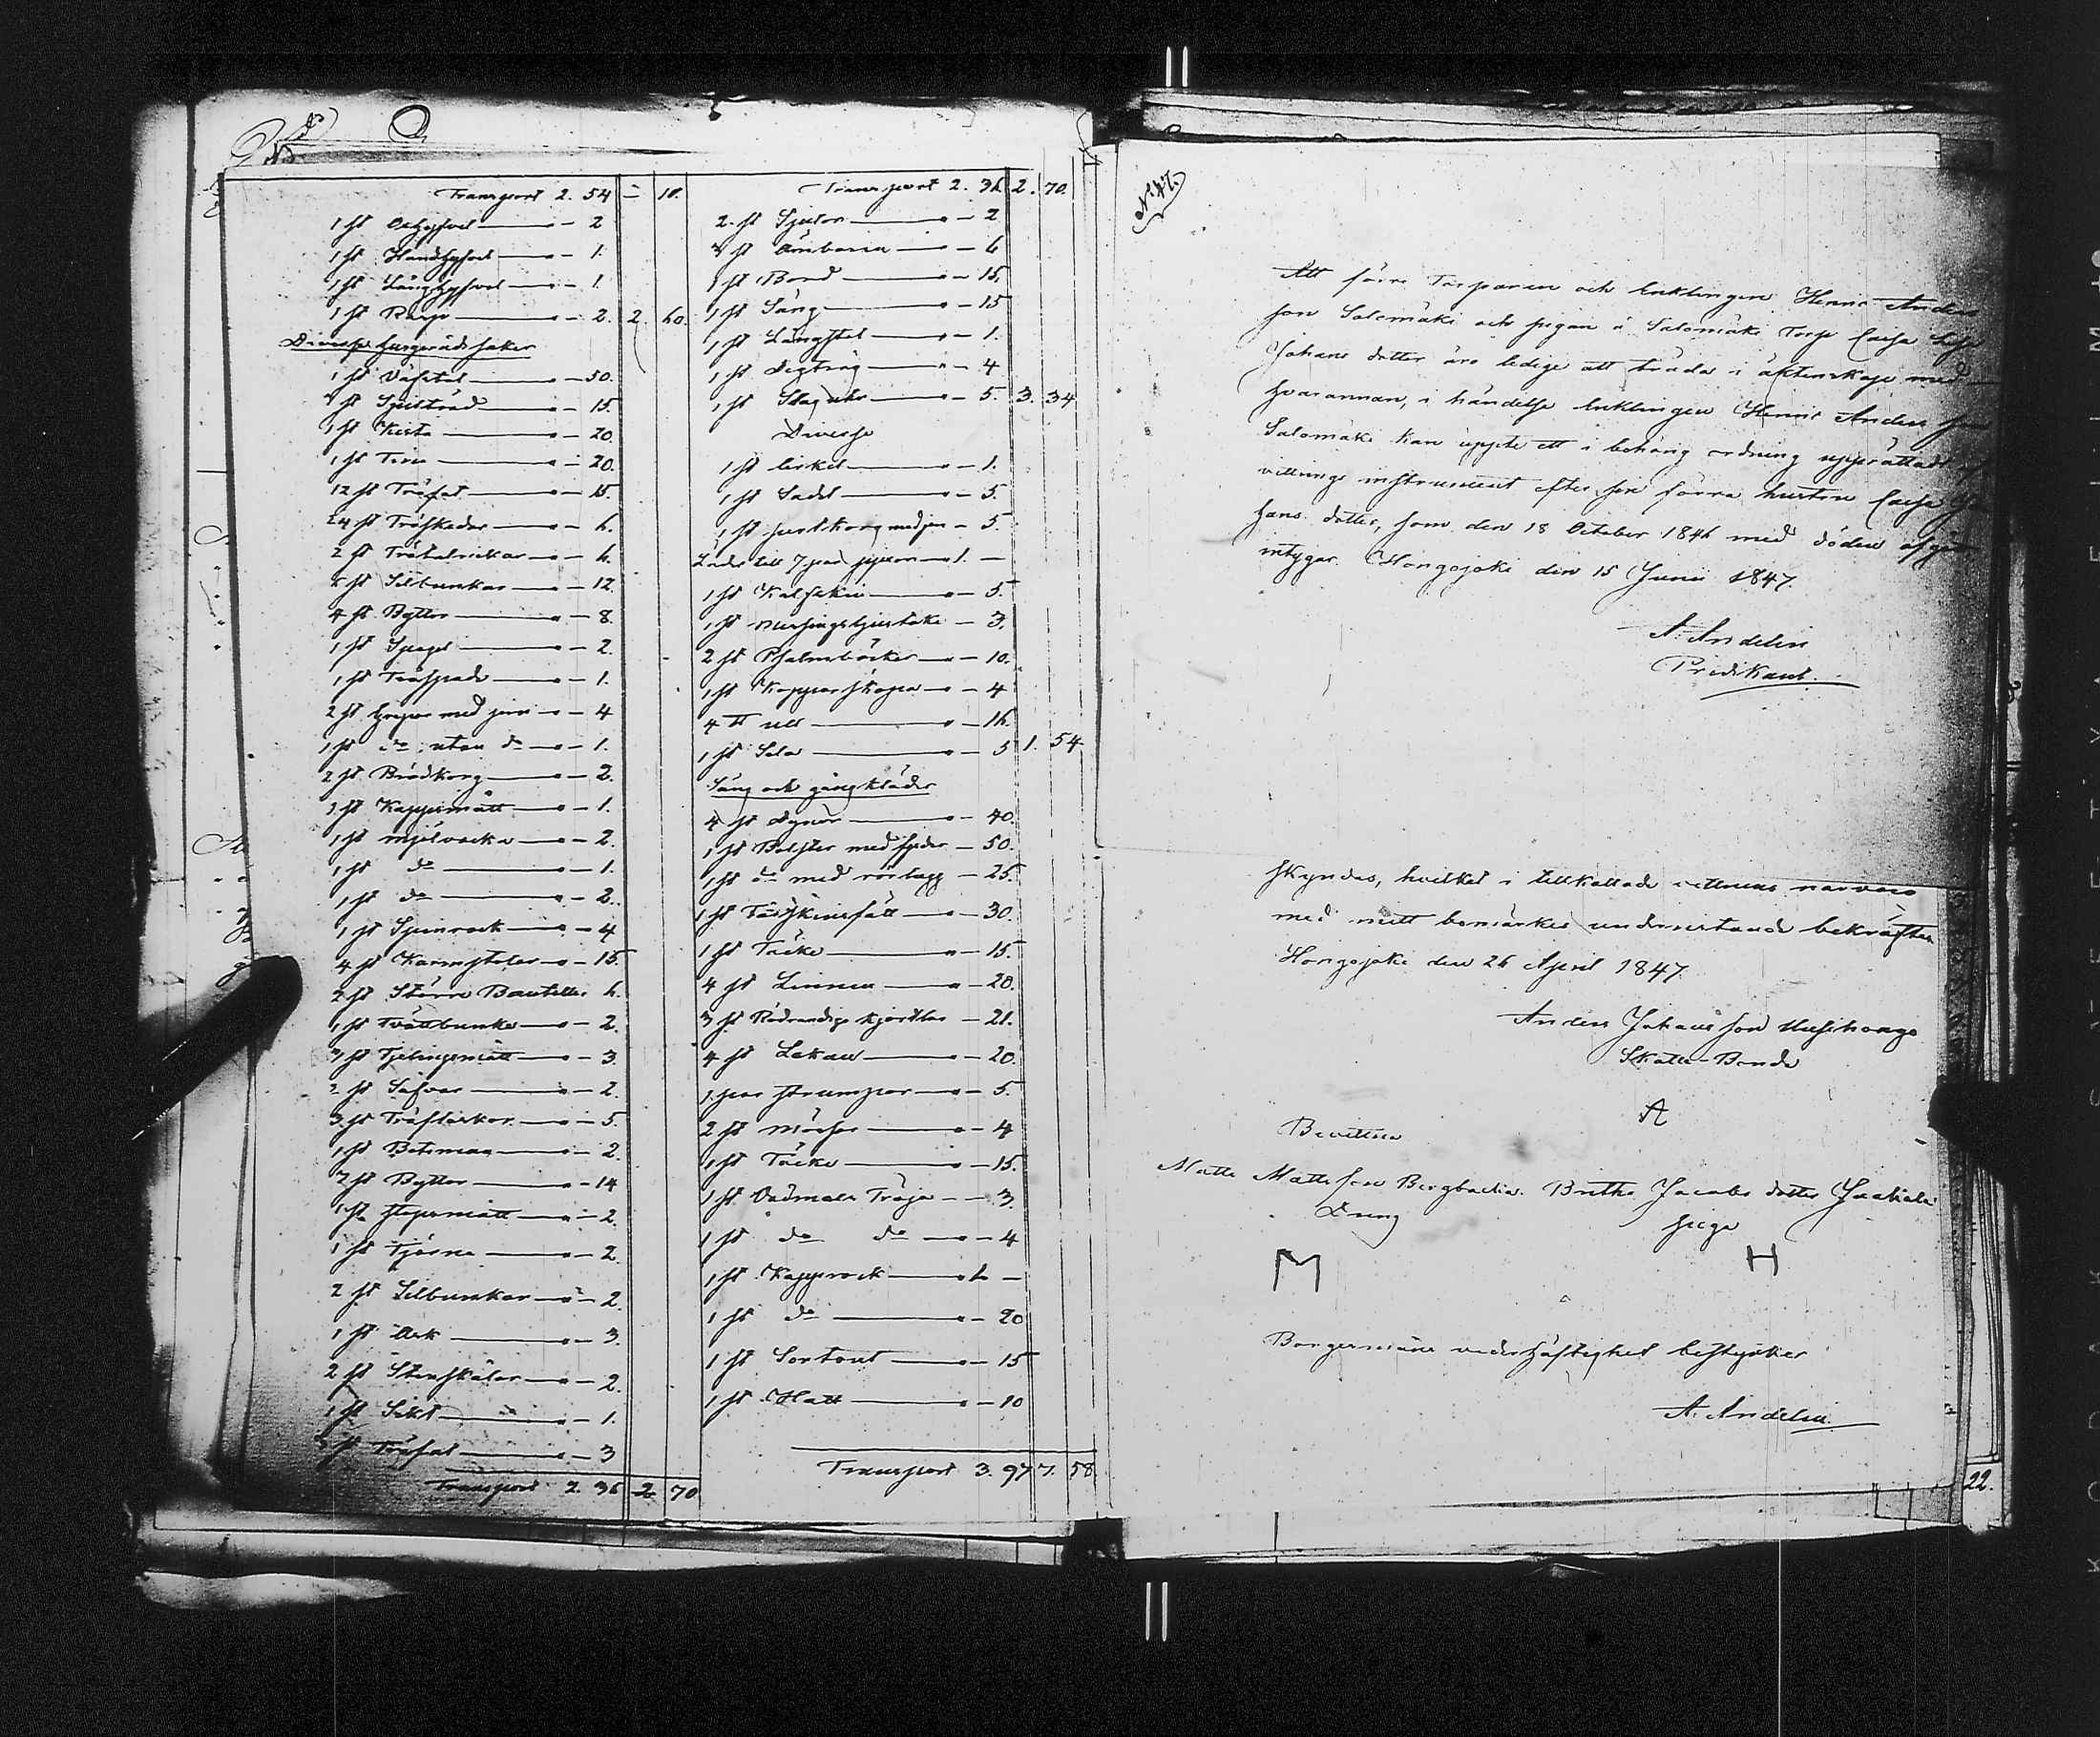 Transport 2. 54 — 10.
1 st Oxhyfvel — 2
1 st Handhyfvel — 1.
1 st Långhyfvel — 1.
1 st Rasp — 2. 2. 60.
Diverse husgeråds saker
1 st Väfstol — 50.
st — 15.
1 st Kista — 20.
1 st Tina — 20.
12 st Träfat — 15.
24 st Träskedar — 6.
2 st Trätalrickar — 6.
8 st Silbunkar — 12.
4 st Byttor — 8.
1 st Spegel — 2.
1 st Träspade — 1.
2 st Grepar med jern — 4
1 st do utan do — 1.
2 st Brödkorg — 2.
1 st Kappemått — 1.
1 st mjölvacka — 2.
1 st do — 1.
1 st do — 2.
1 st Spinrock — 4
4 st Karmstolar — 15.
2 st Större Bouteller 6.
1 st Tvättbunke — 2.
3 st — 3.
2 st Såfvar — 2.
3 st Träflaskor — 5.
1 st — 2.
7 st Byttor — 14
1 st Stopsmått — 2.
1 st Tjärna — 2.
2 st Silbunkar — 2.
1 st Ask — 3.
2 st Stenskålar — 2.
1 st Sikt — 1.
3 st Träfat — 3
Transport 2. 36 2 70
Transport 2. 36 2. 70.
2. st — 2
3 st Ämbaren — 6
1 st Bord — 15.
1 st Säng — 15
1 st Långstol — 1.
1 st Degtråg — 4
1 st Slaguhr — 5. 3. 34
Diverse
1 st Cirkel — 1.
1 st Sadel — 5.
1 st korg med jern — 5.
Läder till 7 par — 1. —
1 st Kalfskin — 5.
1 st messings ljustake — 3.
2 st Psalmböcker — 10.
1 st Kopparskopa — 4
4 ℔ ull — 16.
1 st Sela — 5 1. 54.
Säng och gångkläder
4 st Dynor — 40.
1 st Bolster med fjäder — 50.
1 st do med rörlagg — 25.
1 st Fårskinsfäll — 30.
1 st Täcke — 15.
4 st Linnen — 20.
3 st Rödrandiga kjortlar — 21.
4 st Lakan — 20.
1 par strumpor — 5.
2 st mössor — 4
1 st Täcke — 15.
1 st Vadmals Tröja — 3.
1 st do do — 4
1 st Kapprock — 2 —
1 st do — 20
1 st Sortout — 15
1 st Hatt — 10
Transport 3. 97 7. 58.
N:o 47.
Att förre Torparen och Enklingen Henric Anders
son Salomäki och pigan å Salomäki Torp Caisa Lisa
Johans dotter äro ledige att träda i äktenskap med
hvarannan, i händelse Enklingen Henric Anders son
Salomäki kan uppte ett i behörig ordning upprättadt af
vittrings instrument efter sin förra hustru Caisa
hans dotter, som den 18 October 1846 med döden afgått
intygar. Hongojoki den 15 Junii 1847.
A. Andelin
Predikant.
skyndas, hvilket i tillkallade vittnens närvaro
med mitt bomärkes undersetande bekräftas
Hongojoki den 26 April 1847.
Anders Johans son Uusihongo
Skatte-Bonde
A
Bevittna
Matts Matts son Bergbacka. Britha Jacobs dotter
Dreng piga
M H
Borgesmäns vederhäftighet bestyrker
A. Andelin.
22.